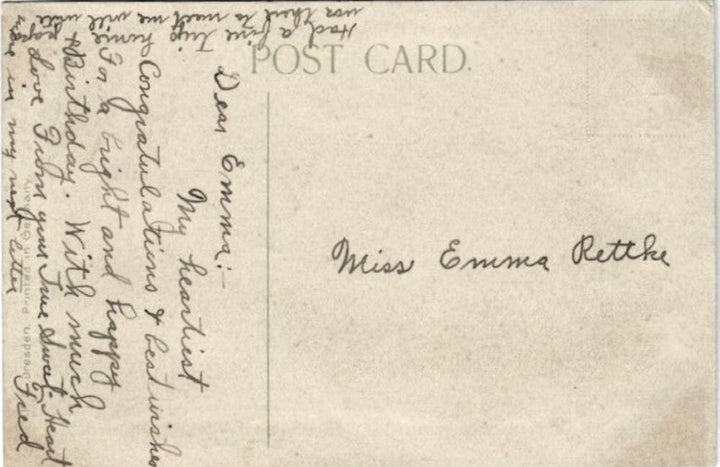 POST CARD.
Dear Emma:-
My heartiest
Congratulations & best wishes
For a bright and happy
Birthday. With much
Love From your True Sweet Heart
Fred
Had a fine Trip home
was
me will write
more in my next letter
Miss Emma Rettke
Printed in Germany
Dresden.